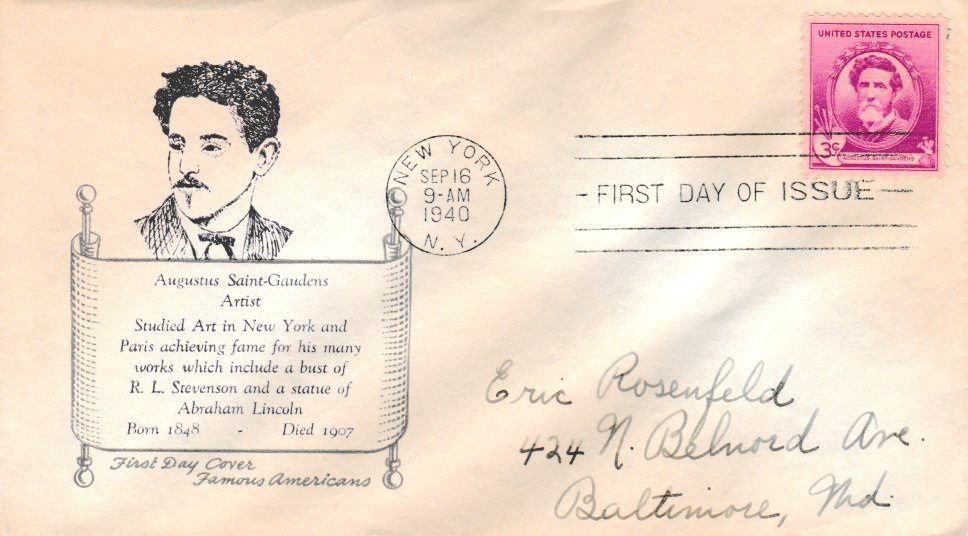 Augustus Saint-Gaudens
Artist
Studied Art in New York and
Paris achieving fame for his many
works which include a bust of
R. L. Stevenson and a statue of
Abraham Lincoln
Born 1848 - Died 1907
First Day Cover
Famous Americans
NEW YORK
SEP 16
9-AM
1940
N. Y.
UNITED STATES POSTAGE
3¢
AUGUSTUS SAINT-GAUDENS
- FIRST DAY OF ISSUE -
Eric Rosenfeld
424 N. Belnord Ave.
Baltimore, Md.